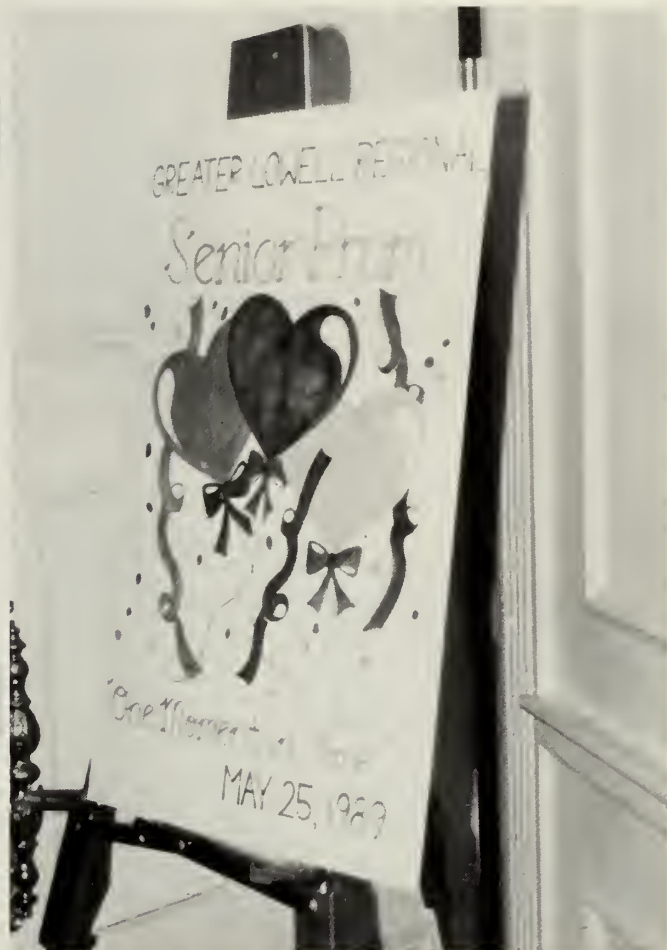 GREATER LOWELL REGIONAL
Senior Prom
"One Moment
MAY 25, 1989